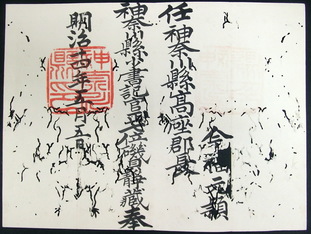 今福元穎
任神奈川縣高座郡長
神奈川縣少書記官正七位磯貝靜藏奉
明治十四年五月五日